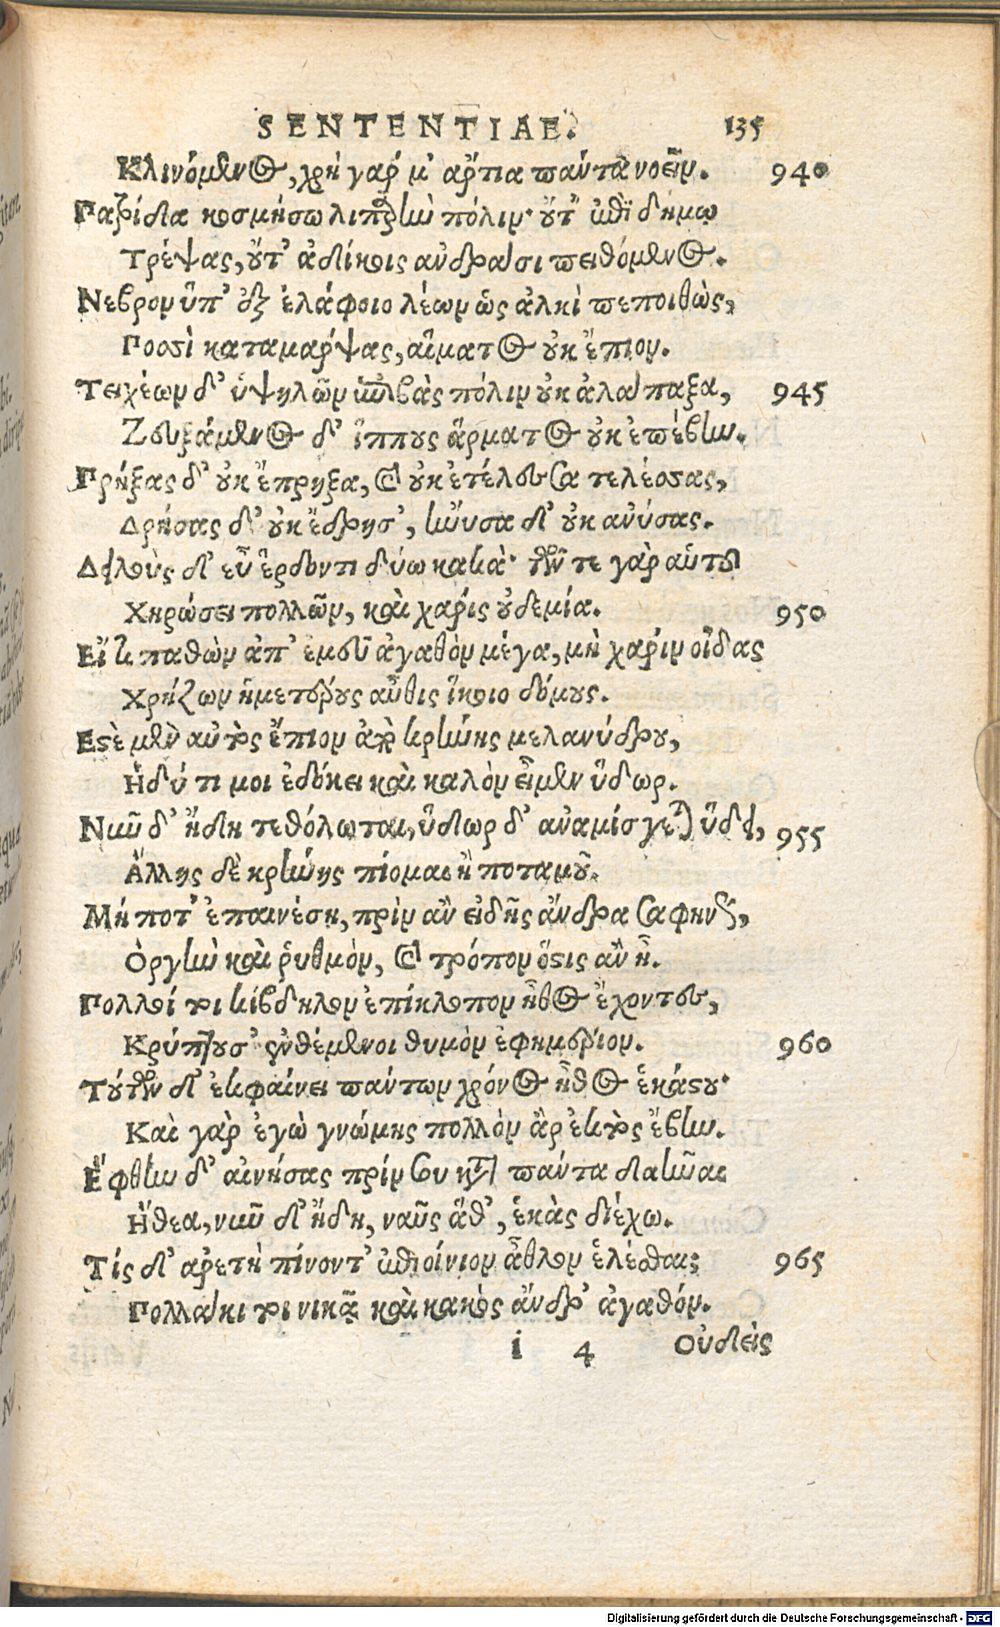 SENTENTIAE. 135
Κλινόμενος, χρὴ γάρ μ' ἄρτια πάντα νοεῖν. 940
Πατρίδα κοσμήσω λιπαρὴν πόλιν· οὔτ' ἐπὶ δήμῳ
Τρέψας, οὔτ' ἀδίκοις ἀνδράσι πειθόμενος.
Νεβρὸν ὑπ' ἐξ ἐλάφοιο λέων ὣς ἀλκὶ πεποιθὼς,
Ποσσὶ καταμάρψας, αἵματος οὐκ ἔπιον.
Τειχέων δ' ὑψηλῶν ἐπιβὰς πόλιν οὐκ ἀλάπαξα, 945
Ζευξάμενος δ' ἵππους ἅρματος οὐκ ἐπέβην.
Πρήξας δ' οὐκ ἔπρηξα, καὶ οὐκ ἐτέλεσσα τελέσσας,
Δρήσας δ' οὐκ ἔδρησ', ἤνυσα δ' οὐκ ἀνύσας.
Δειλοὺς δ' εὖ ἕρδοντι δύω κακά· τῶν τε γὰρ αὑτοῦ
Χηρώσει πολλῶν, καὶ χάρις οὐδεμία. 950
Εἴ τι παθὼν ἀπ' ἐμοῦ ἀγαθὸν μέγα, μὴ χάριν οἶδας
Χρῄζων ἡμετέρους αὖθις ἵκοιο δόμους.
Ἔστε μὲν αὐτὸς ἔπινον ἀπὸ κρήνης μελανύδρου,
Ἡδύ τί μοι ἐδόκει καὶ καλὸν εἶμεν ὕδωρ.
Νῦν δ' ἤδη τεθόλωται, ὕδωρ δ' ἀναμίσγεται ὕδει, 955
Ἄλλης δὲ κρήνης πίομαι ἢ ποταμοῦ.
Μή ποτ' ἐπαινέσῃ, πρὶν ἂν εἰδῇς ἄνδρα σαφηνῶς,
Ὀργὴν καὶ ῥυθμὸν, καὶ τρόπον ὅστις ἂν ᾖ.
Πολλοί τοι κίβδηλον ἐπίκλοπον ἦθος ἔχοντες,
Κρύπτουσ' ἐνθέμενοι θυμὸν ἐφημέριον. 960
Τούτων δ' ἐκφαίνει πάντων χρόνος ἦθος ἑκάστου·
Καὶ γὰρ ἐγὼ γνώμης πολλὸν ἄρ' ἐκτὸς ἔβην.
Ἔφθην δ' αἰνήσας πρίν σου κατὰ πάντα δαῆναι
Ἤθεα, νῦν δ' ἤδη, ναῦς ἅθ', ἑκὰς διέχω.
Τίς δ' ἀρετὴ πίνοντ' ἐπιοίνιον ἆθλον ἑλέσθαι; 965
Πολλάκι τοι νικᾷ καὶ κακὸς ἄνδρ' ἀγαθόν.
i 4 Οὐδεὶς
Digitalisierung gefördert durch die Deutsche Forschungsgemeinschaft - DFG